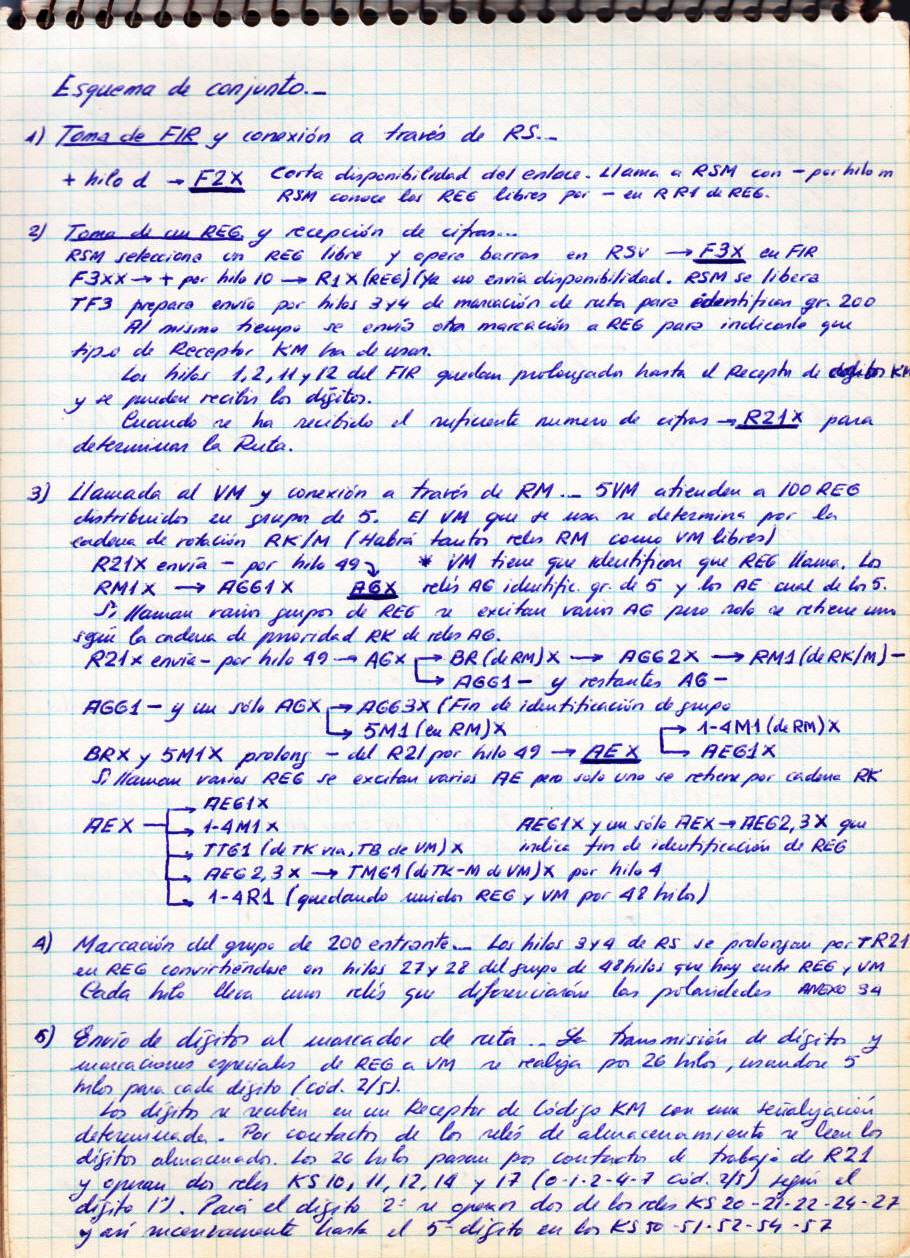 Esquema de conjunto.-
1) Toma de FIR y conexión a través de RS.-
+ hilo d → F2X Corta disponibilidad del enlace. Llama a RSM con - por hilo m
RSM conoce los REG libres por - en RR1 de REG.
2) Toma de un REG y recepción de cifras...
RSM selecciona un REG libre y opera barras en RSV → F3X en FIR
F3XX → + por hilo 10 → R1X (REG) (ya no envia disponibilidad. RSM se libera
TF3 prepara envio por hilos 3y4 de marcación de ruta para identificar gr. 200
Al mismo tiempo se envia otra marcación a REG para indicarle que
tipo de Receptor KM ha de usar.
Los hilos 1, 2, 11 y 12 del FIR quedan prolongados hasta el Receptor de KM
y se pueden recibir los dígitos.
Cuando se ha recibido el suficiente numero de cifras → R21X para
determinar la Ruta.
3) Llamada al VM y conexión a través de RM.- 5VM atienden a 100 REG
distribuidos en grupos de 5. El VM que se usa se determina por la
cadena de rotación RK/M (Habrá tantos relés RM como VM libres)
R21X envía - por hilo 49 * VM tiene que identificar que REG llama. Los
RM1X → AGG1X AGX relés AG identific. gr. de 5 y los AE cual de los 5.
Si llaman varios grupos de REG se excitan varios AG pero solo se retiene uno
según la cadena de prioridad RK de relés AG.
R21X envía - por hilo 49 → AGX → BR (de RM) X → AGG2X → RM1 (de RK/M) -
→ AGG1 - y restantes AG -
AGG1 - y un sólo AGX → AGG3X (Fin de identificación de grupo
→ 5M1 (en RM) X → 1-4M1 (de RM) X
BRX y 5M1X prolong - del R21 por hilo 49 → AEX → AEG1X
Si llaman varios REG se excitan varios AE pero solo uno se retiene por cadena RK
→ AEG1X
AEX → 1-4M1X AEG1X y un sólo AEX → AEG2,3X que
→ TTG1 (de TK via, TB de VM) X indica fin de identificación de REG
→ AEG2,3X → TMG1 (de TK-M de VM) X por hilo 4
→ 1-4R1 (quedando unidos REG y VM por 48 hilos)
4) Marcación del grupo de 200 entrante.- Los hilos 3y4 de RS se prolongan por TR21
en REG convirtiéndose en hilos 27 y 28 del grupo de 48 hilos que hay entre REG y VM
Cada hilo lleva unos relés que diferenciarán las polaridades ANEXO 34
5) Envío de dígitos al marcador de ruta.. La transmisión de dígitos y
marcaciones especiales de REG a VM se realiza por 26 hilos, usandose 5
hilos para cada dígito (cód. 2/5).
Los dígitos se reciben en un Receptor de Código KM con una señalización
determinada. Por contactos de los relés de almacenamiento se leen los
dígitos almacenados. Los 26 hilos pasan por contactos de trabajo de R21
y operan dos relés KS 10, 11, 12, 14 y 17 (0-1-2-4-7 cód. 2/5) según el
dígito 1º). Para el dígito 2º se operan dos de los relés KS 20-21-22-24-27
y así sucesivamente hasta el 5º dígito en los KS 50-51-52-54-57